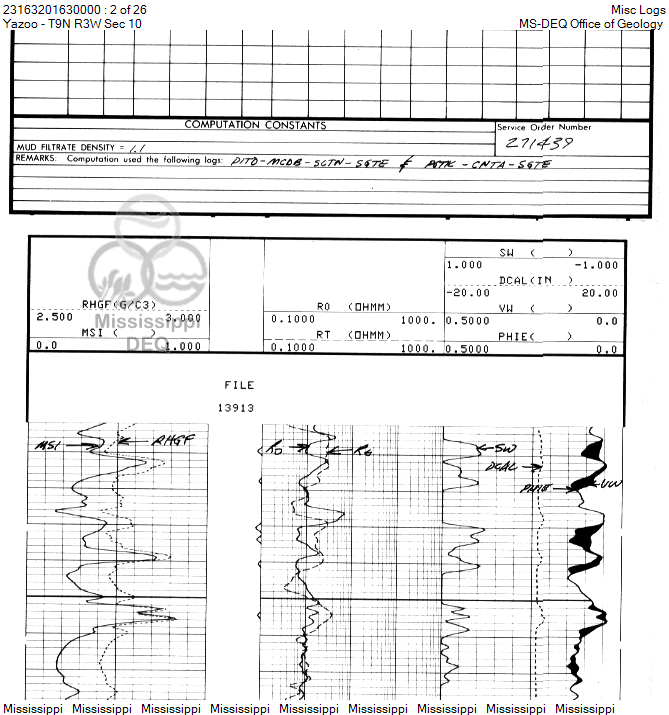 23163201630000 : 2 of 26 Misc Logs
Yazoo - T9N R3W Sec 10 MS-DEQ Office of Geology
COMPUTATION CONSTANTS
Service Order Number
271439
MUD FILTRATE DENSITY = 1.1
REMARKS: Computation used the following logs: DITD-MCDB-SGTN-SGTE & - CNTA-SGTE
SW ( )
1.000 -1.000
DCAL(IN )
-20.00 20.00
RHGF(G/C3) RO (OHMM) VW ( )
2.500 3.000 0.1000 1000. 0.5000 0.0
Mississippi
MSI ( ) RT (OHMM) PHIE( )
DEQ
0.0 1.000 0.1000 1000. 0.5000 0.0
FILE
13913
MSI RHGF RO SW
DCAL
PHIE VW
Mississippi Mississippi Mississippi Mississippi Mississippi Mississippi Mississippi Mississippi Mississippi